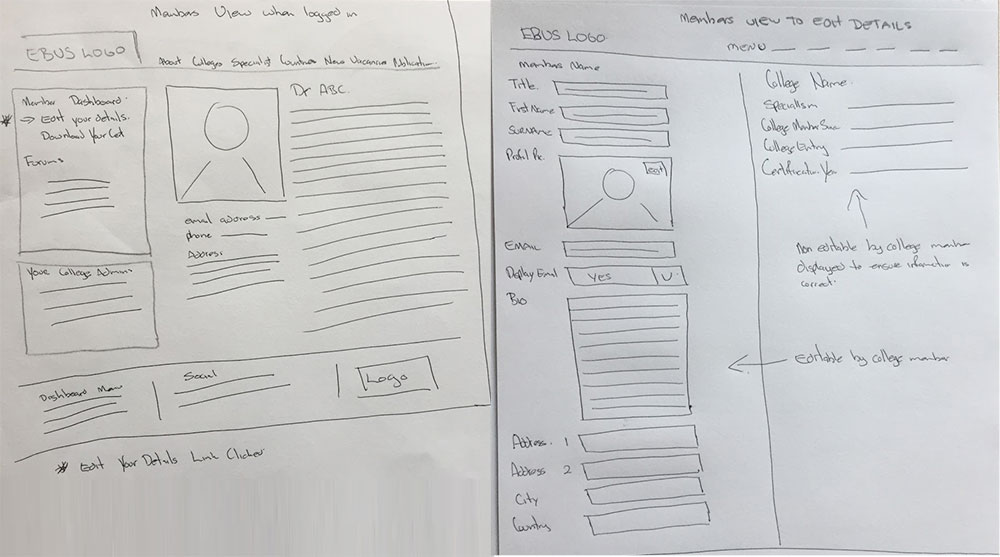 Members View when logged in
EBUS LOGO
About Colleges Specialist Countries News Vacancies Notification
Member Dashboard.
* → Edit your details.
Download Your Cert
Forums
Your College Admins
email address
phone
Address
Dr ABC.
Dashboard Menu
Social
Logo
* Edit Your Details Link Clicked
Members view to Edit DETAILS
EBUS LOGO
menu
Members Name
Title.
First Name
Surname
Profil Pic.
edit
EMAIL
Display Email
Yes
Bio
Address. 1
Address 2
City
Country
College Name.
Specialism
College Member Since
College Entry
Certification Year
Non editable by college member
displayed to ensure information is
correct.
Editable by college member